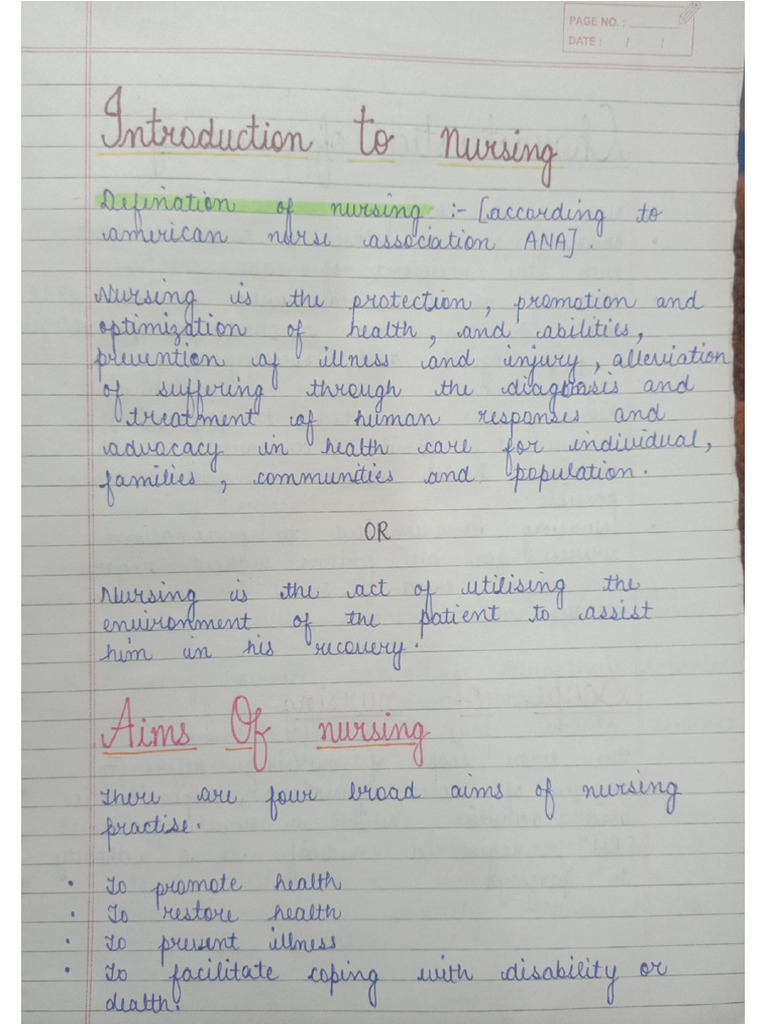 PAGE NO. :
DATE : / /
Introduction to Nursing
Defination of nursing :- [according to
american nurse association ANA].
Nursing is the protection, promotion and
optimization of health, and abilities,
prevention of illness and injury, alleviation
of suffering through the diagnosis and
treatment of human responses and
advocacy in health care for individual,
families, communities and population.
OR
Nursing is the act of utilising the
environment of the patient to assist
him in his recovery.
Aims Of nursing
There are four broad aims of nursing
practise.
• To promote health
• To restore health
• To prevent illness
• To facilitate coping with disability or
death.